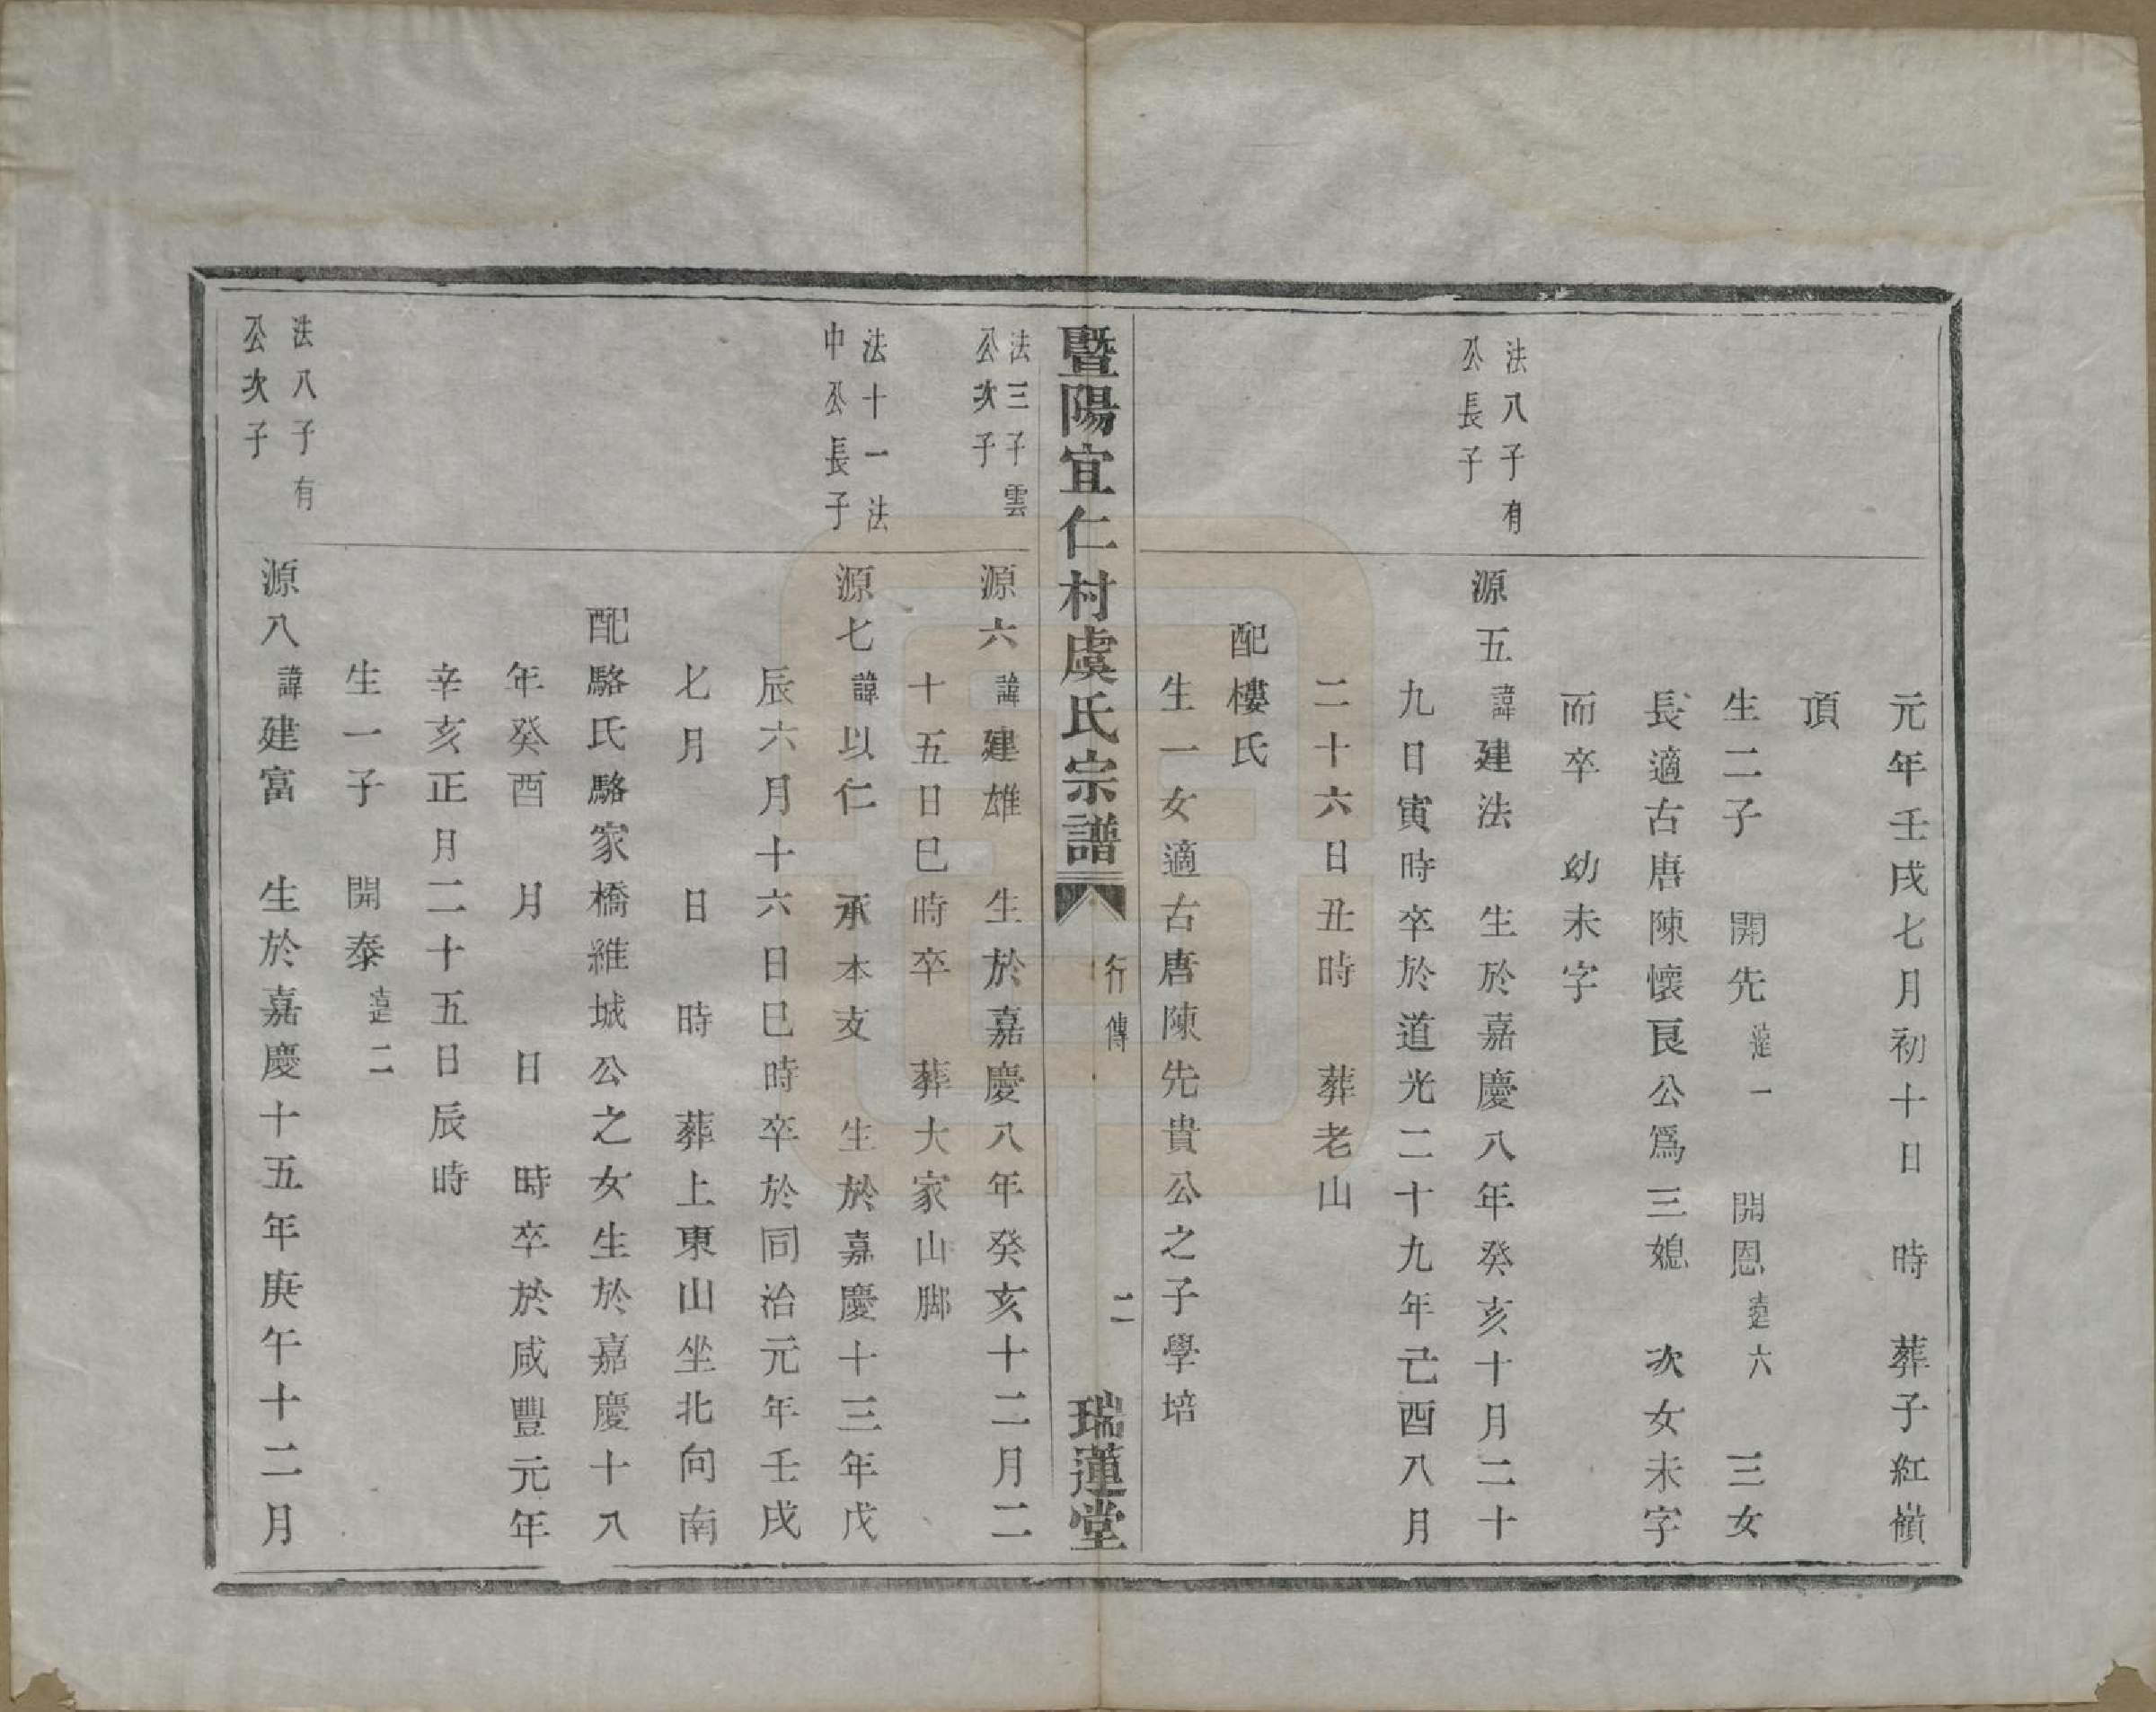 元年壬戌七月初十日　時　葬子紅嶺
頂
生二子　開先　一　開恩　六　三女
長適古唐陳懷良公爲三媳　次女未字
而卒　幼未字
法八子有
公長子
源五諱建法　生於嘉慶八年癸亥十月二十
九日寅時卒於道光二十九年己酉八月
二十六日丑時　葬老山
配樓氏
生一女適古唐陳先貴公之子學培
暨陽宜仁村虞氏宗譜　行傳　二　瑞蓮堂
法三子雲
公次子
源六諱建雄　生於嘉慶八年癸亥十二月二
十五日巳時卒　葬大家山脚
法十一法
中公長子
源七諱以仁　承本支　生於嘉慶十三年戊
辰六月十六日巳時卒於同治元年壬戌
七月　日　時　葬上東山坐北向南
配駱氏駱家橋維城公之女生於嘉慶十八
年癸酉　月　日　時卒於咸豐元年
辛亥正月二十五日辰時
生一子　開泰　二
法八子有
公次子
源八諱建富　生於嘉慶十五年庚午十二月